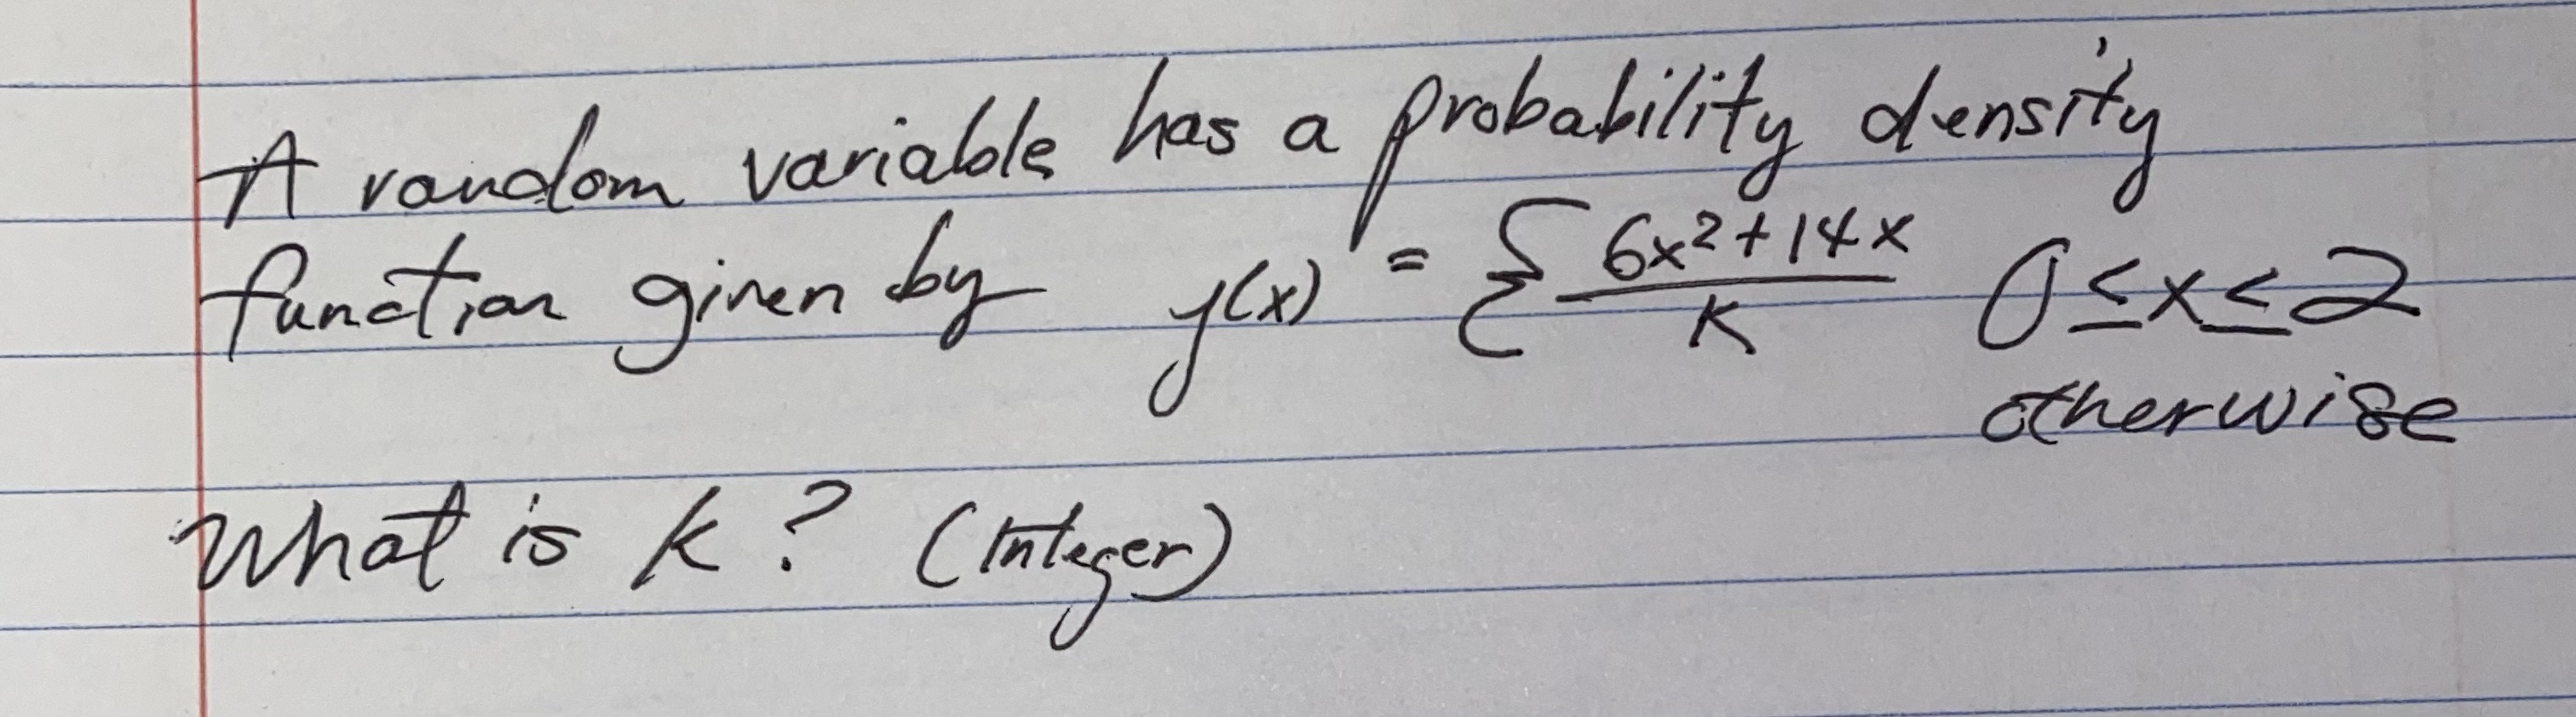 A random variable has a probability density
function given by y(x) = { (6x² + 14x)/K 0 ≤ x ≤ 2
otherwise
What is k? (Integer)